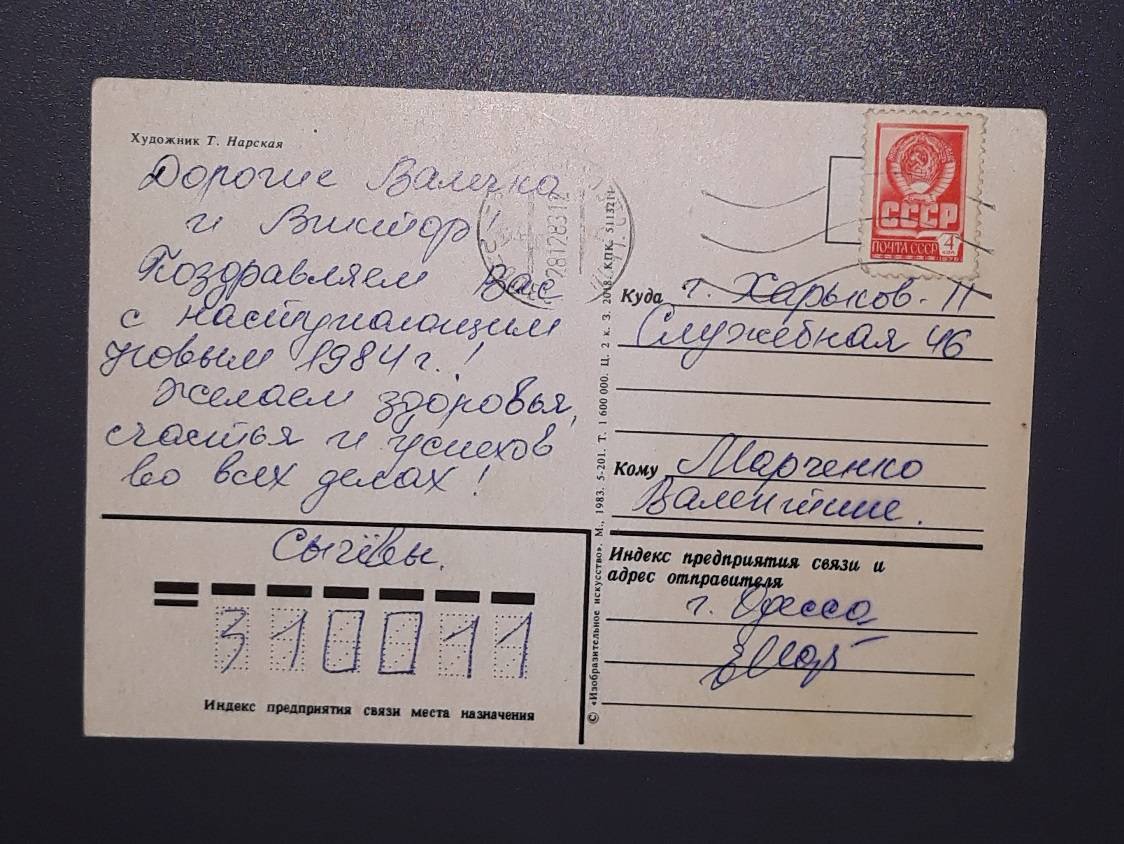 Художник Т. Нарская
Дорогие Валечка
и Виктор!
Поздравляем Вас
с наступающим
новым 1984 г.!
Желаем здоровья,
счастья и успехов
во всех делах!
Сычёвы.
310011
Индекс предприятия связи места назначения
© «Изобразительное искусство». М., 1983. 5-201. Т. 1 600 000. Ц. 2 к. З. 2018. КПК. 5113211
28128312
СССР
ПОЧТА СССР
4
КОП
1976
Куда г. Харьков-11
Служебная 46
Кому Марченко
Валентине.
Индекс предприятия связи и
адрес отправителя
г. Одесса